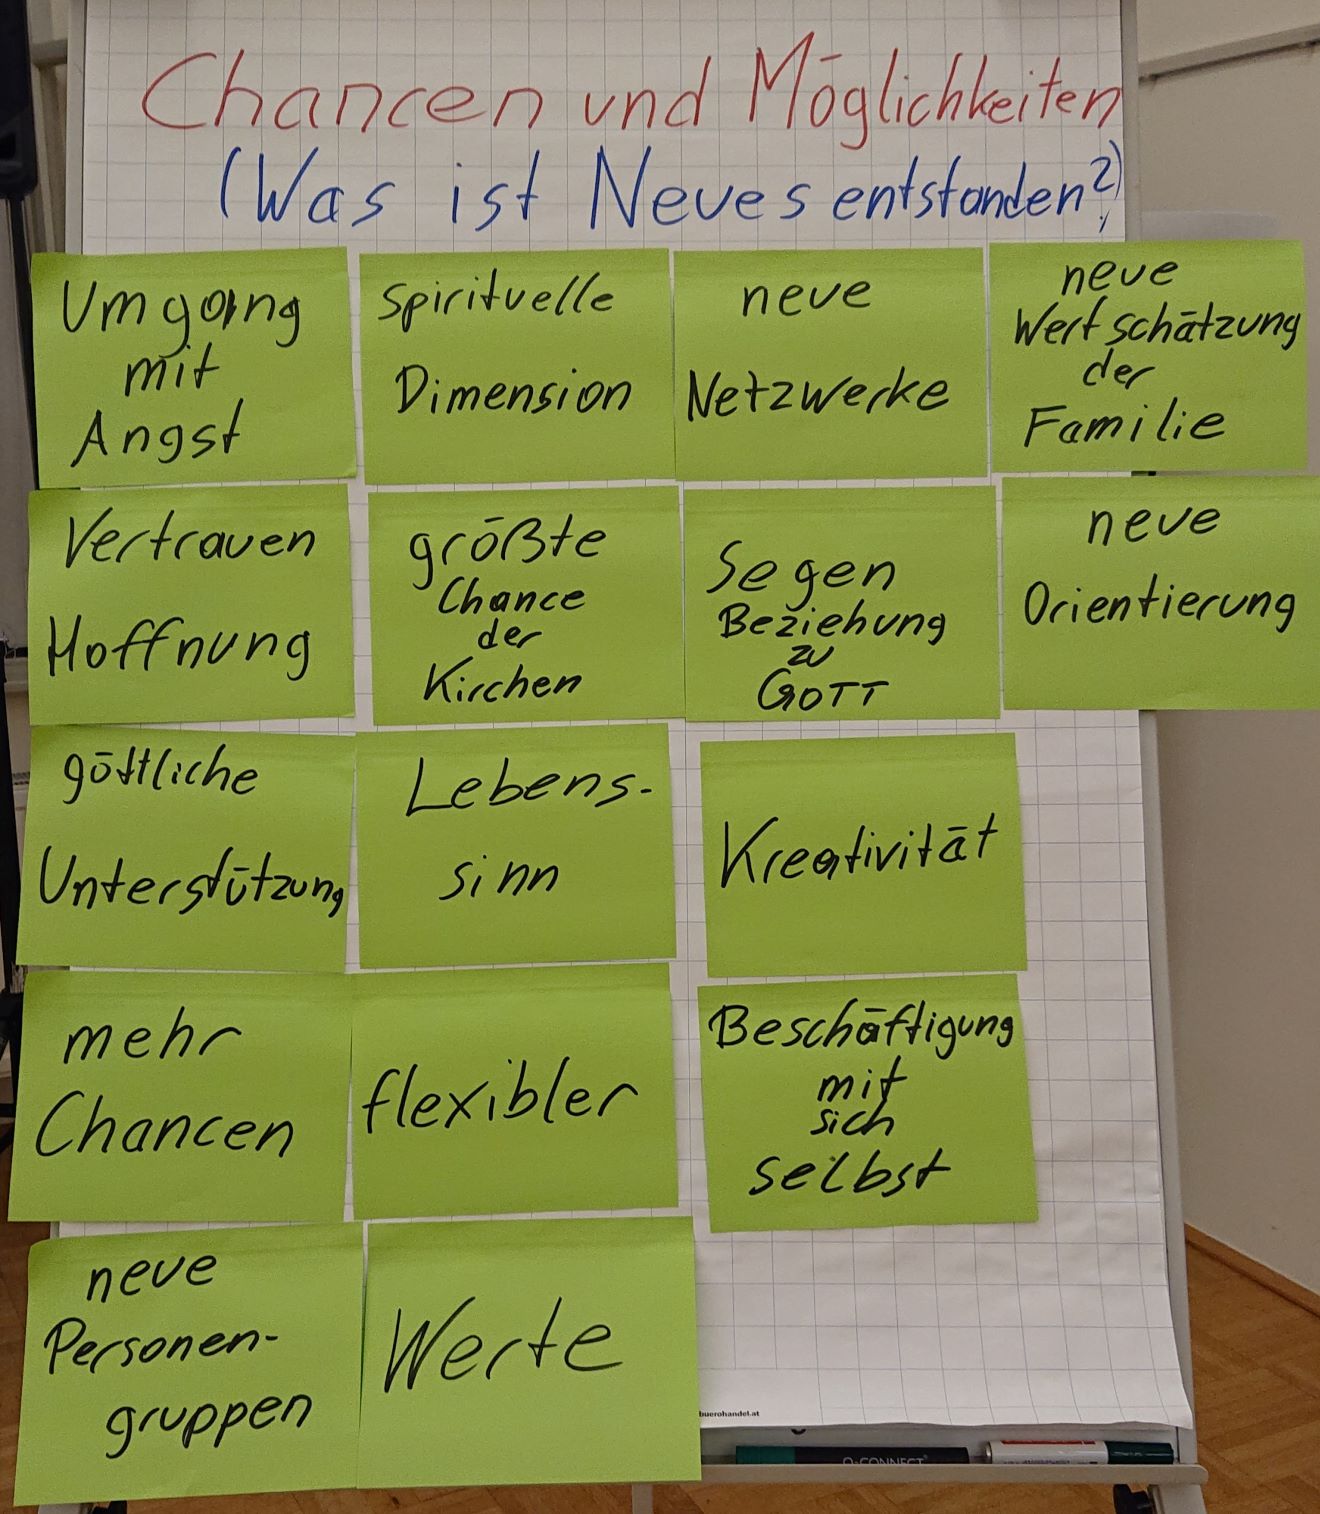 Chancen und Möglichkeiten
(Was ist Neues entstanden?)
Umgang
mit
Angst
Spirituelle
Dimension
neue
Netzwerke
neue
Wertschätzung
der
Familie
Vertrauen
Hoffnung
größte
Chance
der
Kirchen
Segen
Beziehung
zu
GOTT
neue
Orientierung
göttliche
Unterstützung
Lebens-
sinn
Kreativität
mehr
Chancen
flexibler
Beschäftigung
mit
sich
selbst
neue
Personen-
gruppen
Werte
buerohandel.at
Q-CONNECT